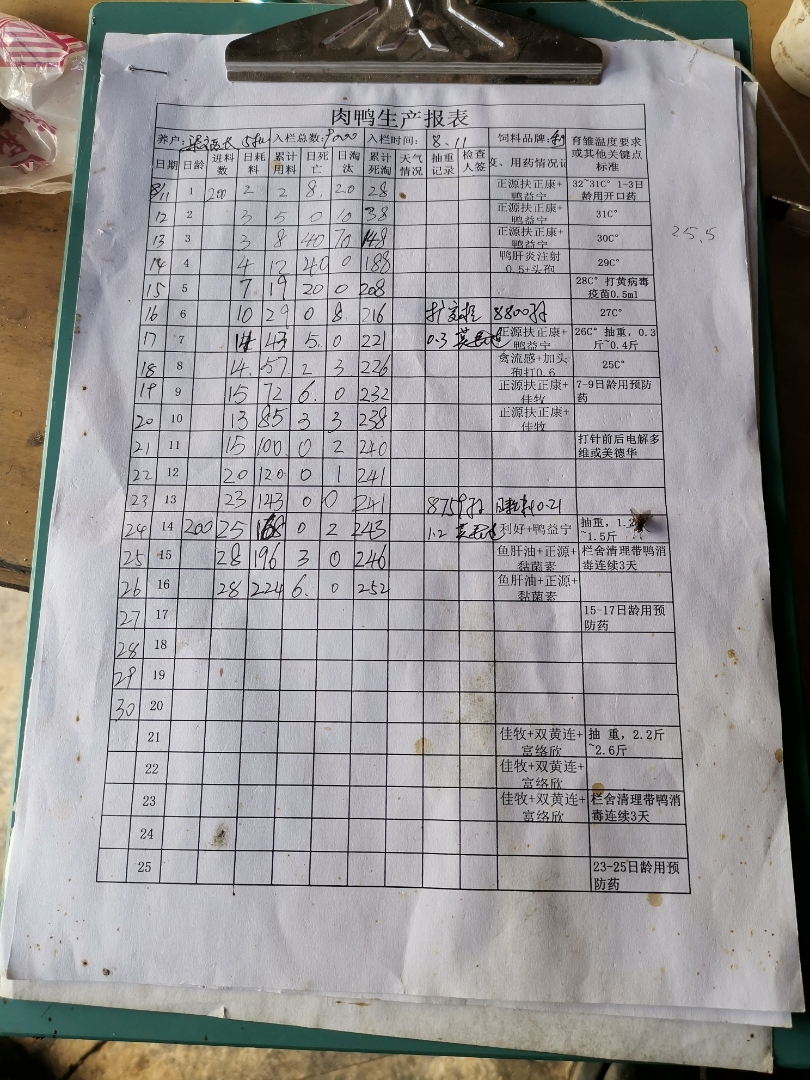 肉鸭生产报表
养户: 入栏总数:9000 入栏时间: 8.11 饲料品牌: 育雏温度要求或其他关键点标准
日期 日龄 进料数 日耗料 累计用料 日死亡 日淘汰 累计死淘 天气情况 抽重记录 检查人签 疫、用药情况记
8/11 1 200 2 2 8. 20 28 正源扶正康+鸭益宁 32~31C° 1-3日龄用开口药
12 2 3 5 0 10 38 正源扶正康+鸭益宁 31C°
13 3 3 8 40 70 148 正源扶正康+鸭益宁 30C°
25.5
14 4 4 12 40 0 188 鸭肝炎注射0.5+头孢 29C°
15 5 7 19 20 0 208 28C° 打黄病毒疫苗0.5ml
16 6 10 29 0 8 216 8800 27C°
17 7 14 43 5. 0 221 0.3 正源扶正康+鸭益宁 26C° 抽重，0.3斤~0.4斤
18 8 14. 57 2 3 226 禽流感+加头孢打0.6 25C°
19 9 15 72 6. 0 232 正源扶正康+佳牧 7-9日龄用预防药
20 10 13 85 3 3 238 正源扶正康+佳牧
21 11 15 100. 0 2 240 打针前后电解多维或美德华
22 12 20 120 0 1 241
23 13 23 143 0 0 241 8759 0.21
24 14 200 25 168 0 2 243 1.2 利好+鸭益宁 抽重，1.2 ~1.5斤
25 15 28 196 3 0 246 鱼肝油+正源+黏菌素 栏舍清理带鸭消毒连续3天
26 16 28 224 6. 0 252 鱼肝油+正源+黏菌素
27 17 15-17日龄用预防药
28 18
29 19
30 20
21 佳牧+双黄连+富络欣 抽 重，2.2斤~2.6斤
22 佳牧+双黄连+富络欣
23 佳牧+双黄连+富络欣 栏舍清理带鸭消毒连续3天
24
25 23-25日龄用预防药